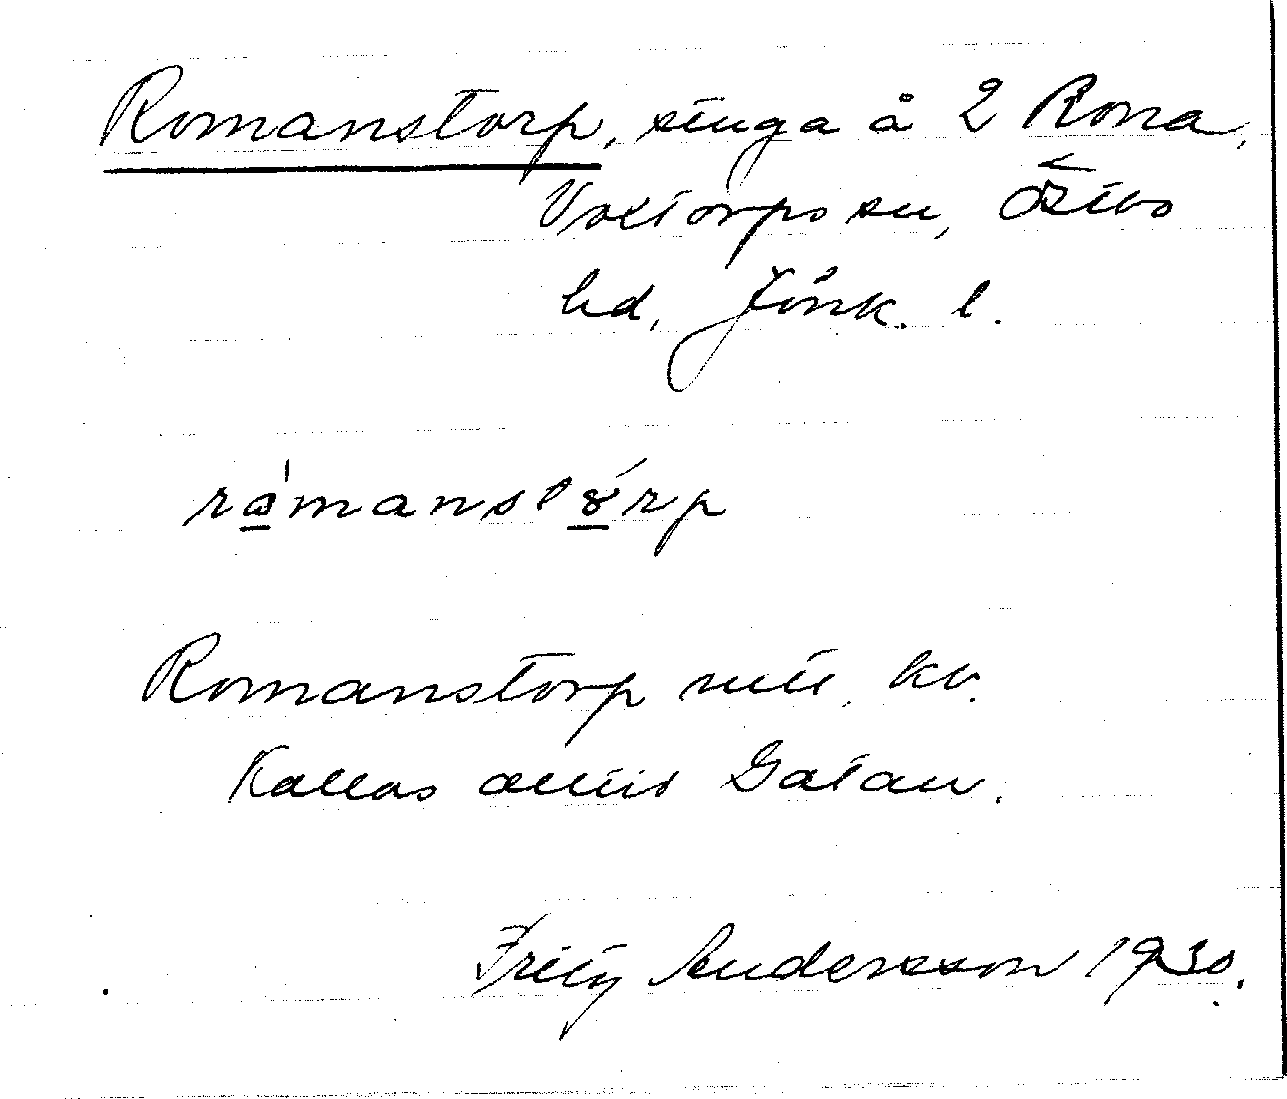 Romanstorp, stuga å 2 Rona,
Voxtorps sn, Östbo
hd, Jönk. l.
råmanstörp
Romanstorp utt. kv.
Kallas alltid Gatan.
Frity Andersson 1930.